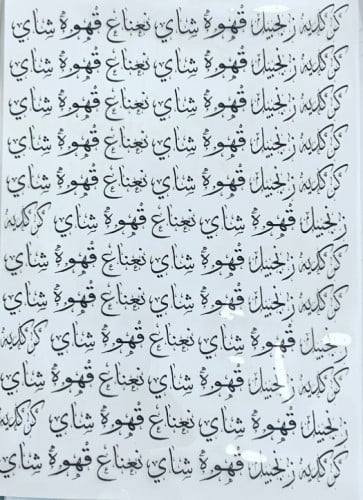 كركدية زنجبيل قهوة شاي نعناع قهوة شاي
كركدية زنجبيل قهوة شاي نعناع قهوة شاي
كركدية زنجبيل قهوة شاي نعناع قهوة شاي
كركدية زنجبيل قهوة شاي نعناع قهوة شاي
كركدية زنجبيل قهوة شاي نعناع قهوة شاي
زنجبيل قهوة شاي نعناع قهوة شاي كركدية
كركدية زنجبيل قهوة شاي نعناع قهوة شاي
كركدية زنجبيل قهوة شاي نعناع قهوة شاي
زنجبيل قهوة شاي نعناع قهوة شاي كركدية
كركدية زنجبيل قهوة شاي نعناع قهوة شاي
زنجبيل قهوة شاي نعناع قهوة شاي كركدية
كركدية زنجبيل قهوة شاي نعناع قهوة شاي